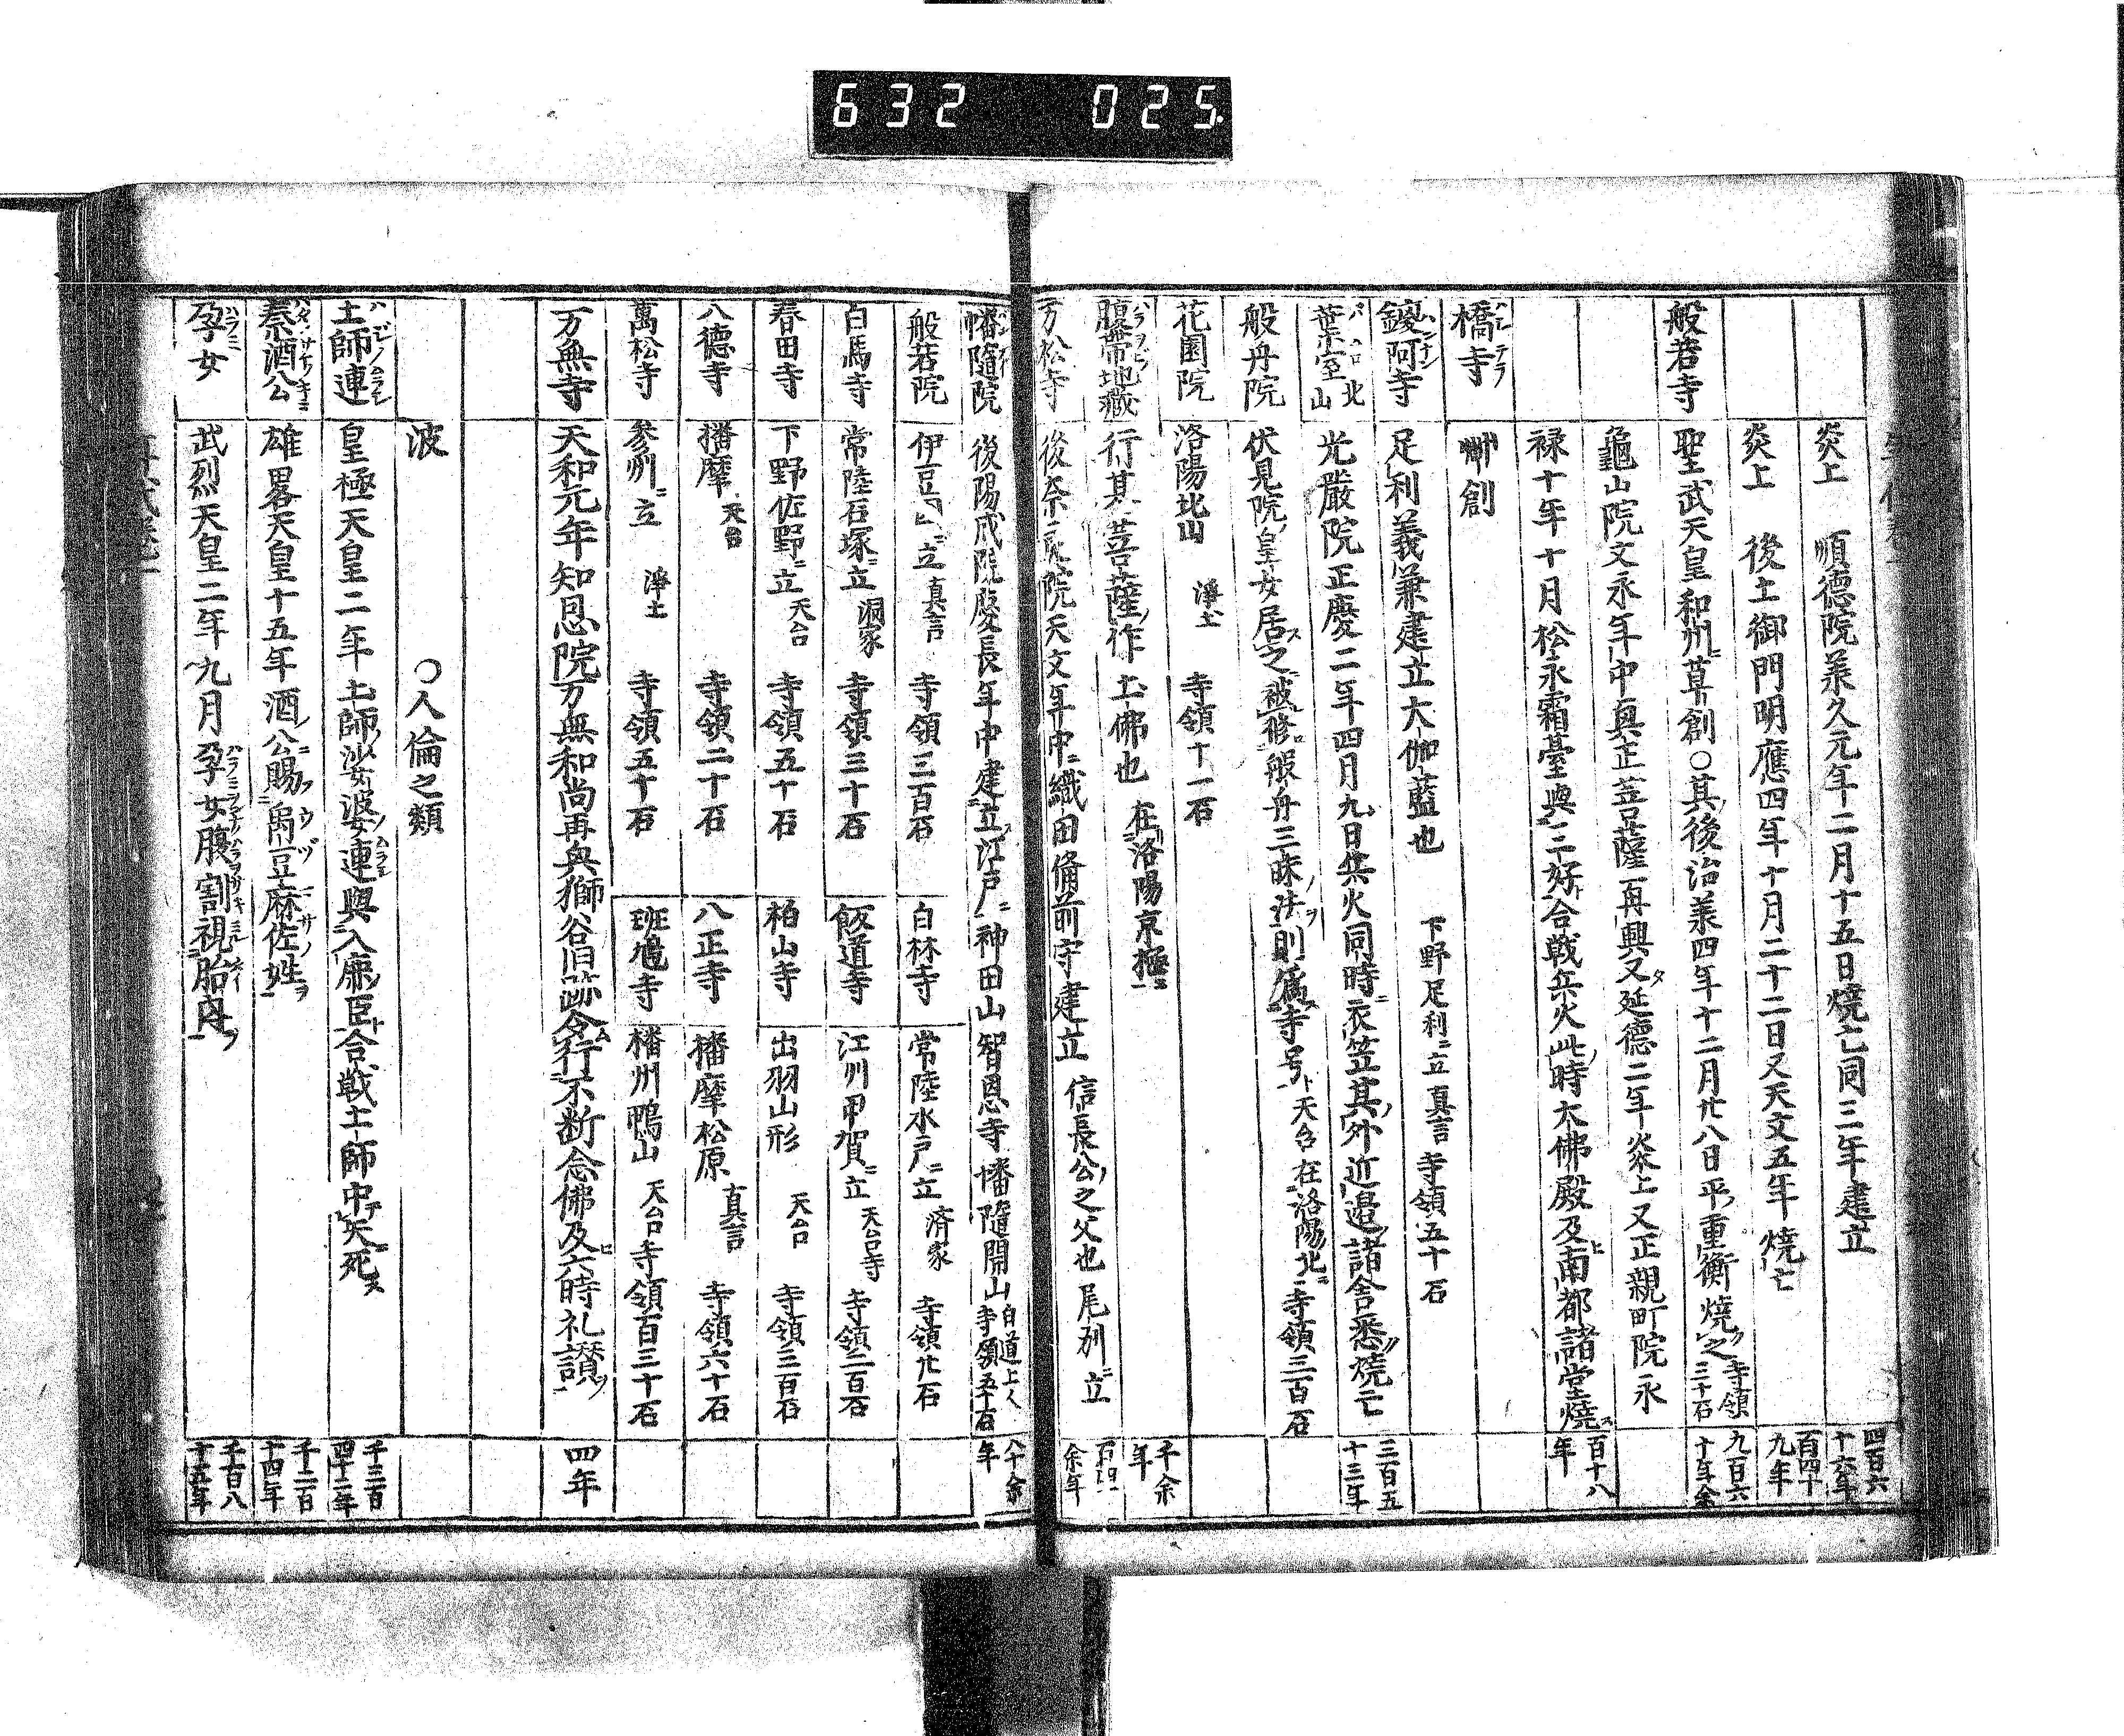 632 025.
炎上 順德院美久元年二月十五日燒亡同三年建立 四百六十六年
炎上 後土御門明應四年十月二十二日又天文五年燒亡 百四十九年
般若寺 聖武天皇和州草創〇其後治美四年十二月廿八日平重衡燒之 寺領三十石 九百六十年余
龜山院文永年中與正菩薩再興又延德二年炎上又正親町院永
禄十年十月松永霜臺與三好合戦兵火此時大佛殿及南都諸堂燒 百十八年
橋寺 草創
鑁阿寺 足利義兼建立大伽藍也 下野足利ニ立 真言 寺領五十石
葉室山 光嚴院正慶二年四月九日兵火同時衣笠其外近邉諸舎悉燒亡 三百五十三年
般舟院 伏見院皇女居之被修般舟三昧法則爲寺号 天台在洛陽北 寺領三百石
花園院 洛陽北山 淨土 寺領十一石
腹帶地藏 行基菩薩作土佛也 在洛陽京極 千余年
万松寺 後奈良院天文年中織田備前守建立 信長公之父也 尾州ニ立 余年
幡隨院 後陽成院慶長年中建立江戸神田山智恩寺幡隨開山 白道上人 寺領五十石 八十余年
般若院 伊豆ニ立 真言 寺領三百石 白林寺 常陸水戸ニ立 済家 寺領廿石
白馬寺 常陸石塚ニ立 洞家 寺領三十石 飯道寺 江州甲賀ニ立 天台寺 寺領二百石
春田寺 下野佐野ニ立 天台 寺領五十石 柏山寺 出羽山形 天台 寺領三百石
八德寺 播摩 天台 寺領二十石 八正寺 播摩松原 真言 寺領六十石
萬松寺 参州ニ立 淨土 寺領五十石 班鳩寺 播州鴨山 天台 寺領百三十石
万無寺 天和元年知恩院万無和尚再興獅谷旧跡令行不断念佛及六時礼讃 四年
波 〇人倫之類
土師連 皇極天皇二年土師娑婆連與入鹿臣合戦土師中矢死 千三百四十二年
秦酒公 雄畧天皇十五年酒公賜禹豆麻佐姓 千二百十四年
孕女 武烈天皇二年九月孕女腹割視胎内 千百八十五年